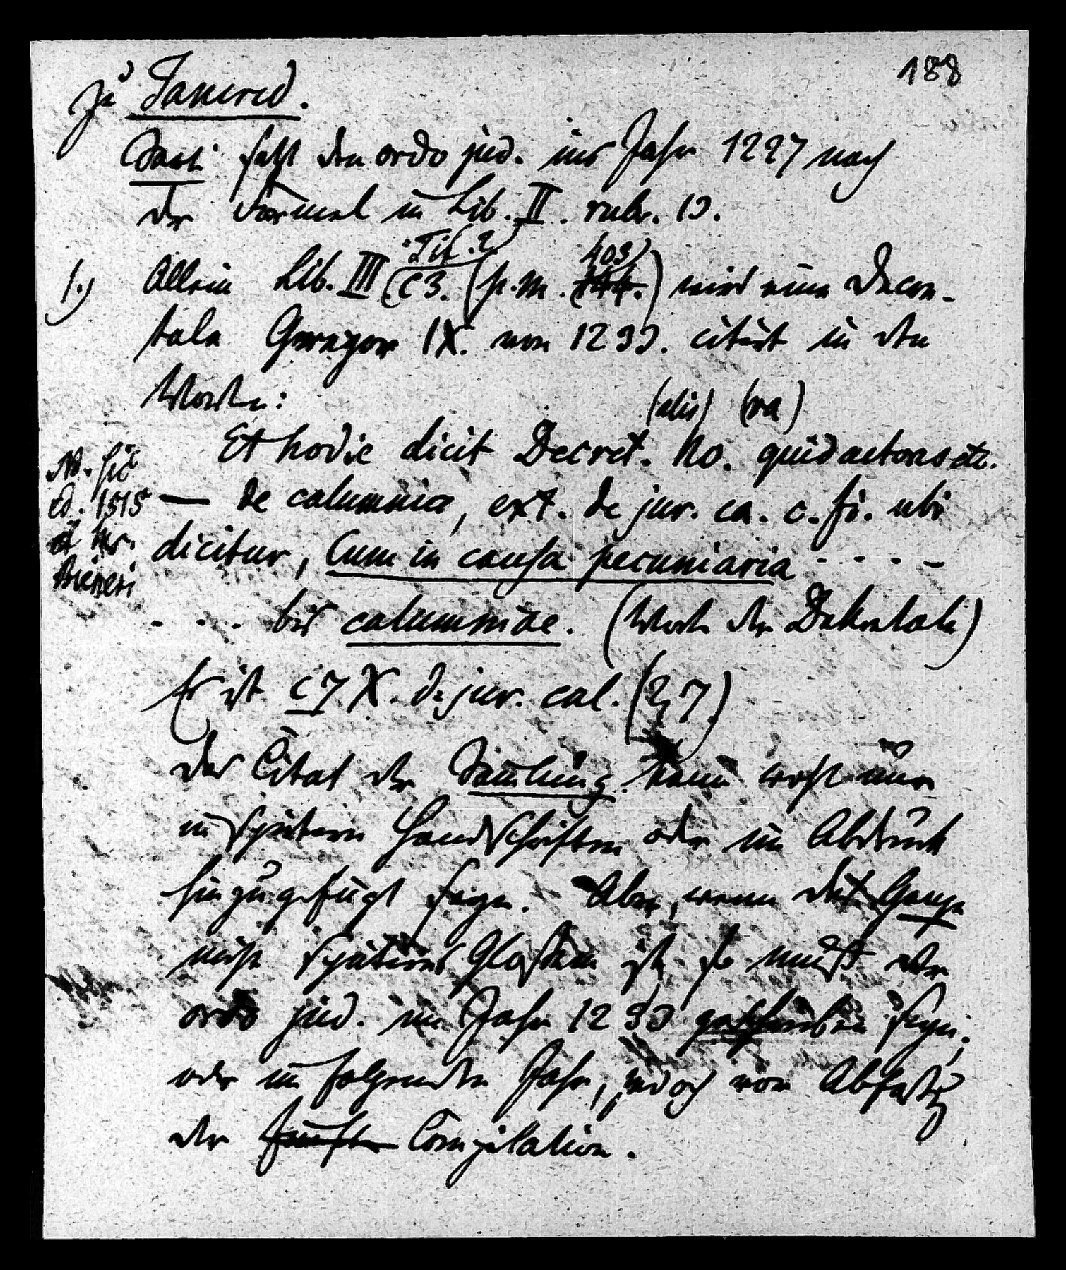 188
Zu Tancred.
Sarti setzt den ordo jud. ins Jahr 1227 nach
der Formel in Lib. II. rubr. 13.
1.) Allein Lib. III Tit. 2. C 3. (p. m. 403) wird eine Decre-
tale Gregor IX. von 1233. citirt in den
Worten:
(alis) (ra)
Et hodie dicit Decret. No. quid actoris etc.
— de calumnia, ext. de jur. ca. c. fi. ubi
dicitur, Cum in causa pecuniaria . . . . –
. . . . bis calumniae. (Worte der Dekretale)
NB. sic
ed. 1515
et
Es ist c 7 X. de jur. cal. (2, 7.)
Das Citat der Samlung kann wohl nur
in spätern Handschriften oder im Abdruck
hinzugefügt seyn. Aber, wenn das Ganze
nicht späteres Glossem ist, so muß der
ordo jud. im Jahr 1233 geschrieben seyn,
oder im folgenden Jahr, jedoch vor Abfassg
der Compilation.